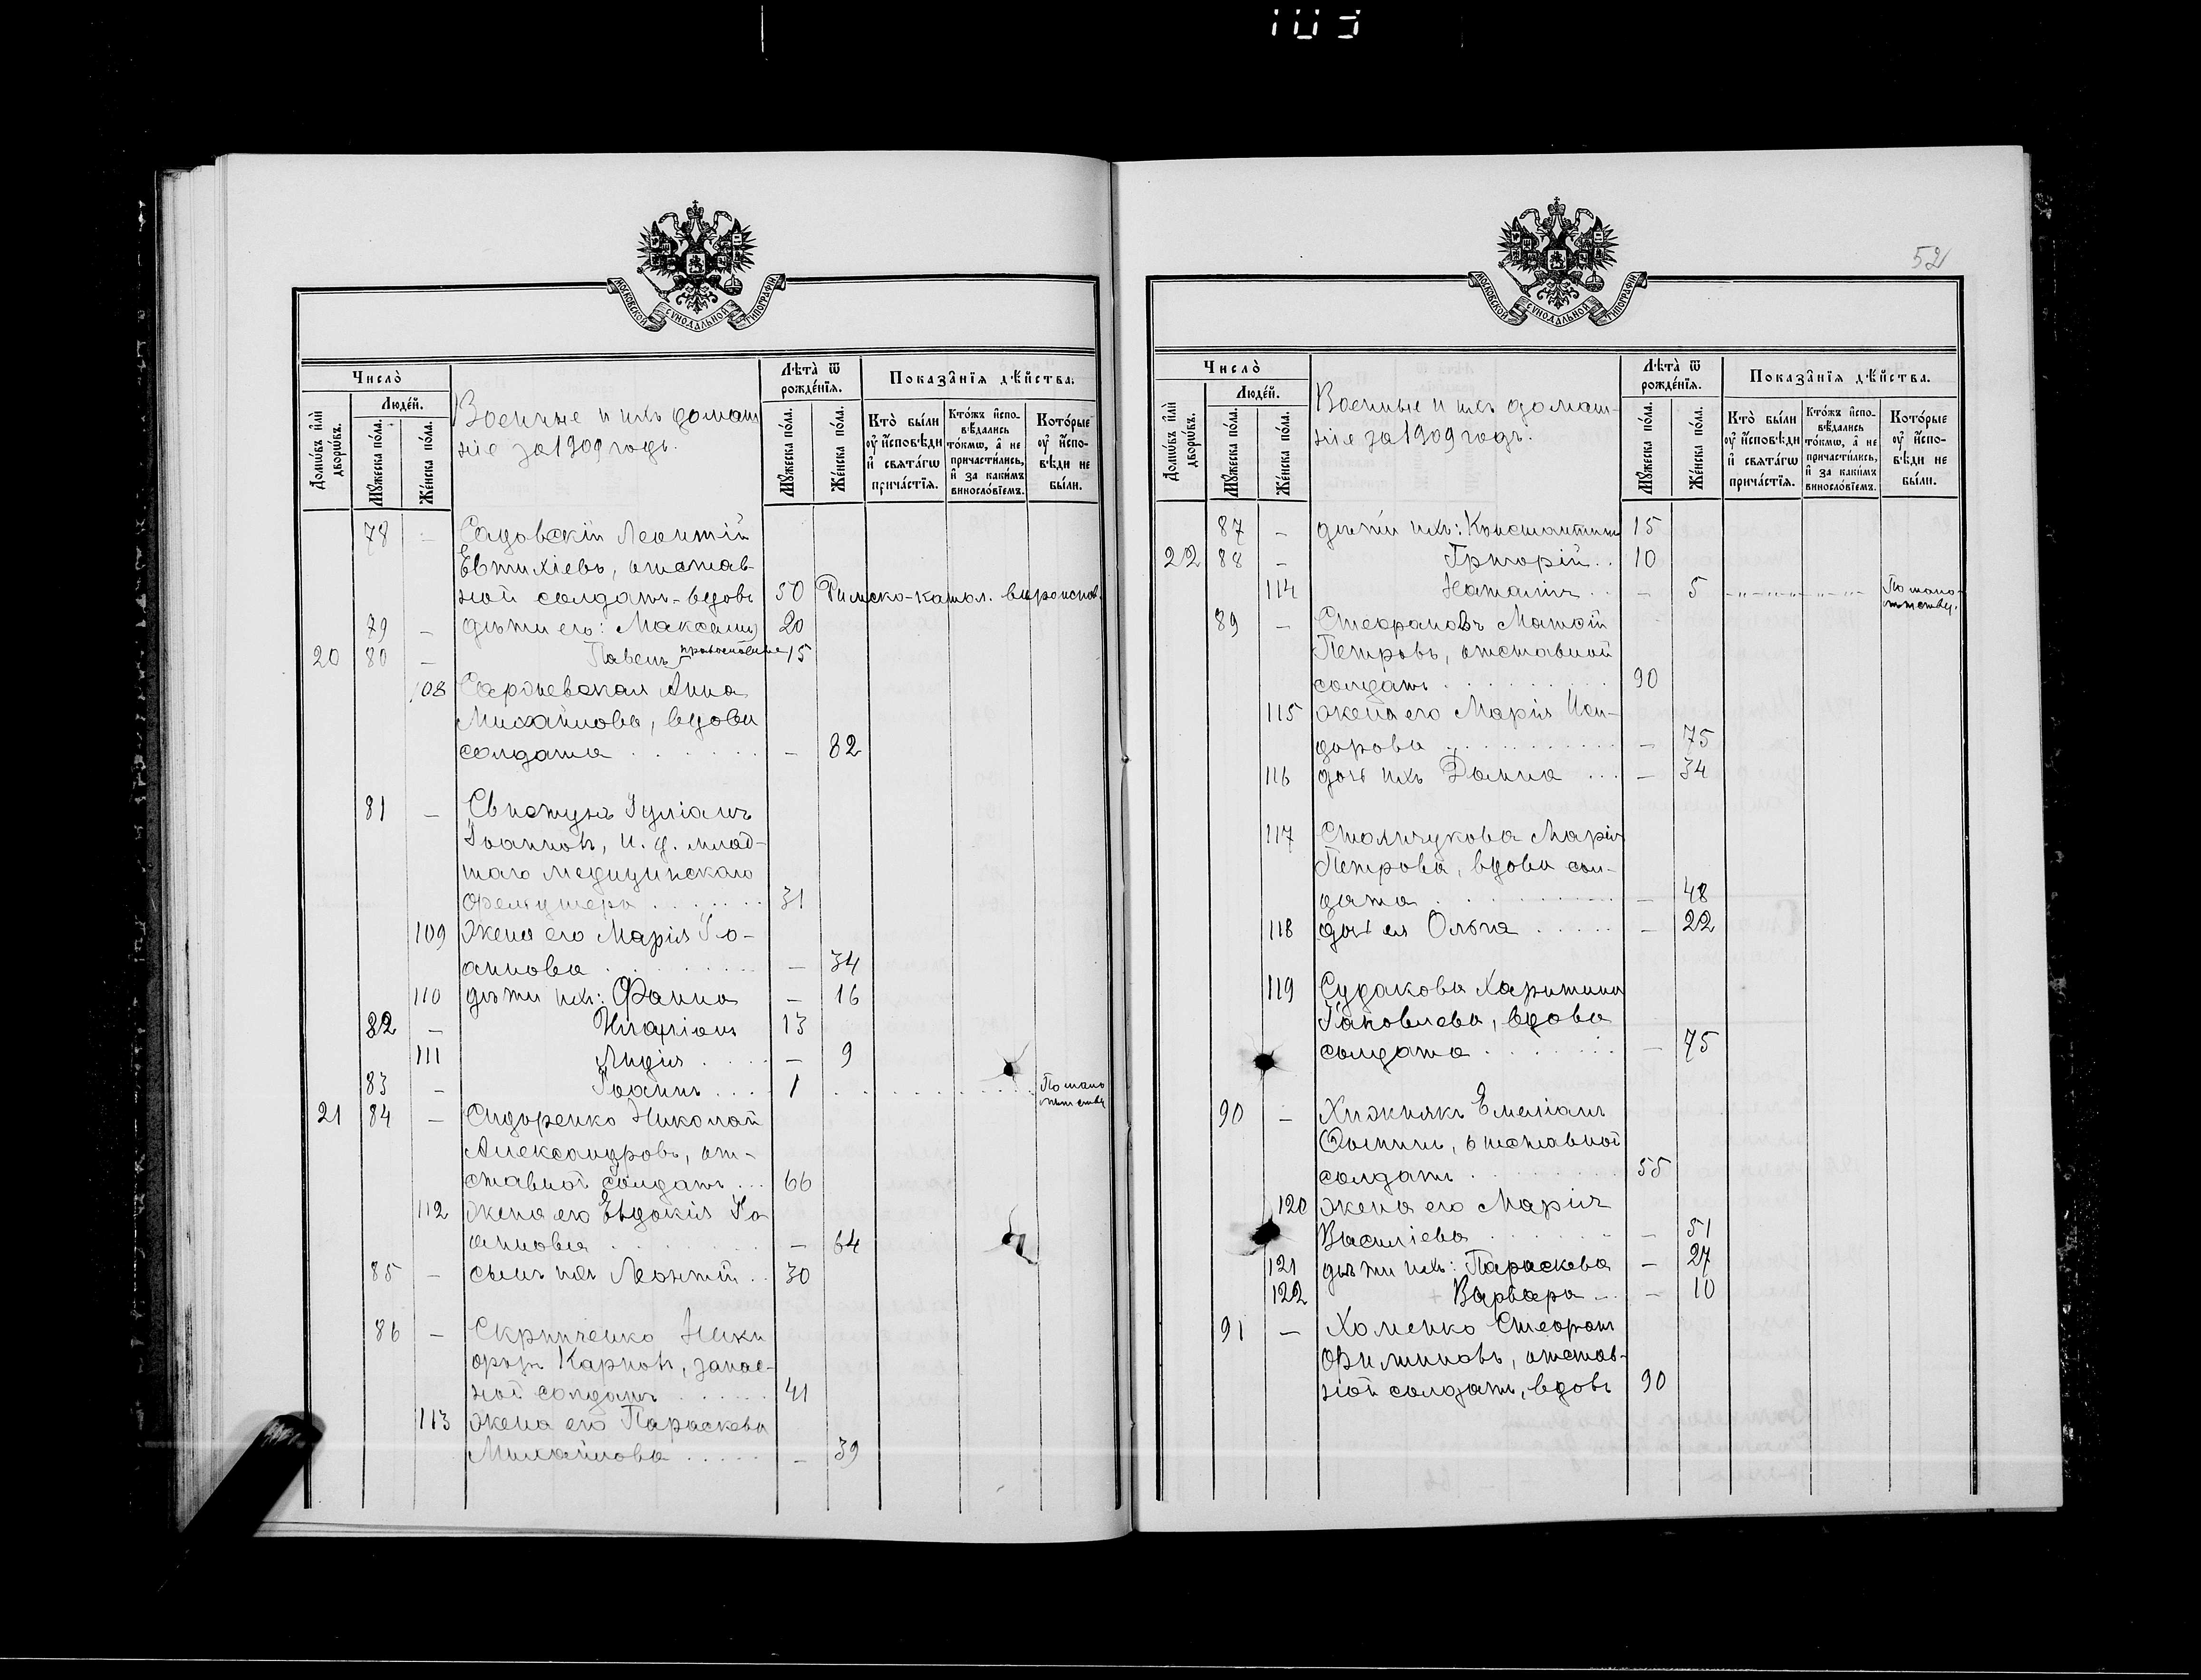 103
МОСКОВСКОЙ СѴНОДАЛЬНОЙ ТИПОГРАФІИ
Число̀
Лѣта̀ ѿ рожде́нїѧ.
Показа̑нїѧ дѣ́йства.
Домѡ́въ и҆лѝ дворѡ́въ.
Люде́й.
Мꙋ́жеска по́ла.
Же́нска по́ла.
Военные и ихъ домаш
ніе за 1909 годъ.
Мꙋ́жеска по́ла.
Же́нска по́ла.
Кто̀ бы́ли ᲂу҆ и҆сповѣ́ди и҆ свѧта́гѡ прича́стїѧ.
Кто́жъ и҆спо-вѣ́дались то́кмѡ, а҆ не причасти́лись, и҆ за каки́мъ винослóвїемъ.
Кото́рые ᲂу҆ и҆спо-вѣ́ди не бы́ли.
78 – Садовскій Леонтій
Евтихіевъ, отстав-
ной солдатъ-вдовъ 50 Римско-катол. вѣроиспов.
79 – дѣти его: Максимъ 20
20 80 – Павелъ православные 15
108 Сарневская Анна
Михайлова, вдова
солдата – 82
81 – Свистунъ Іуліанъ
Іоанновъ, и. д. млад-
шаго медицинскаго
фельдшера 31
109 жена его Марія Іо-
аннова – 34
110 дѣти ихъ: Фанна – 16
82 – Иларіонъ 13
111 Лидія – 9
83 – Іоаннъ 1 По мало
лѣтству
21 84 – Сидоренко Николай
Александровъ, от-
ставной солдатъ 66
112 жена его Евдокія Іо
аннова – 64
85 – сынъ ихъ Леонтій 30
86 – Скрипченко Ники
форъ Карповъ, запас-
ной солдатъ 41
113 жена его Параскева
Михайлова – 39
52
МОСКОВСКОЙ СѴНОДАЛЬНОЙ ТИПОГРАФІИ
Число̀
Лѣта̀ ѿ рожде́нїѧ.
Показа̑нїѧ дѣ́йства.
Домѡ́въ и҆лѝ дворѡ́въ.
Люде́й.
Мꙋ́жеска по́ла.
Же́нска по́ла.
Военные и ихъ домаш-
ніе за 1909 годъ.
Мꙋ́жеска по́ла.
Же́нска по́ла.
Кто̀ бы́ли ᲂу҆ и҆сповѣ́ди и҆ свѧта́гѡ прича́стїѧ.
Кто́жъ и҆спо-вѣ́дались то́кмѡ, а҆ не причасти́лись, и҆ за каки́мъ винослóвїемъ.
Кото́рые ᲂу҆ и҆спо-вѣ́ди не бы́ли.
87 – дѣти ихъ: Константинъ 15
22 88 – Григорій 10
114 Наталія – 5 По мало-
лѣтству.
89 – Стефановъ Матѳій
Петровъ, отставной
солдатъ 90
115 жена его Марія Иси-
дорова – 75
116 дочь ихъ Домна – 34
117 Стольчукова Марія
Петрова, вдова сол-
дата – 48
118 дочь ея Ольга – 22
119 Судакова Харитина
Іаковлева, вдова
солдата – 75
90 – Хижнякъ Емеліанъ
Ѳоминъ, отставной
солдатъ 55
120 жена его Марія
Василіева – 51
121 дѣти ихъ: Параскева – 27
122 Варвара – 10
91 – Хоменко Стефанъ
Филиповъ, отстав-
ной солдатъ, вдовъ 90